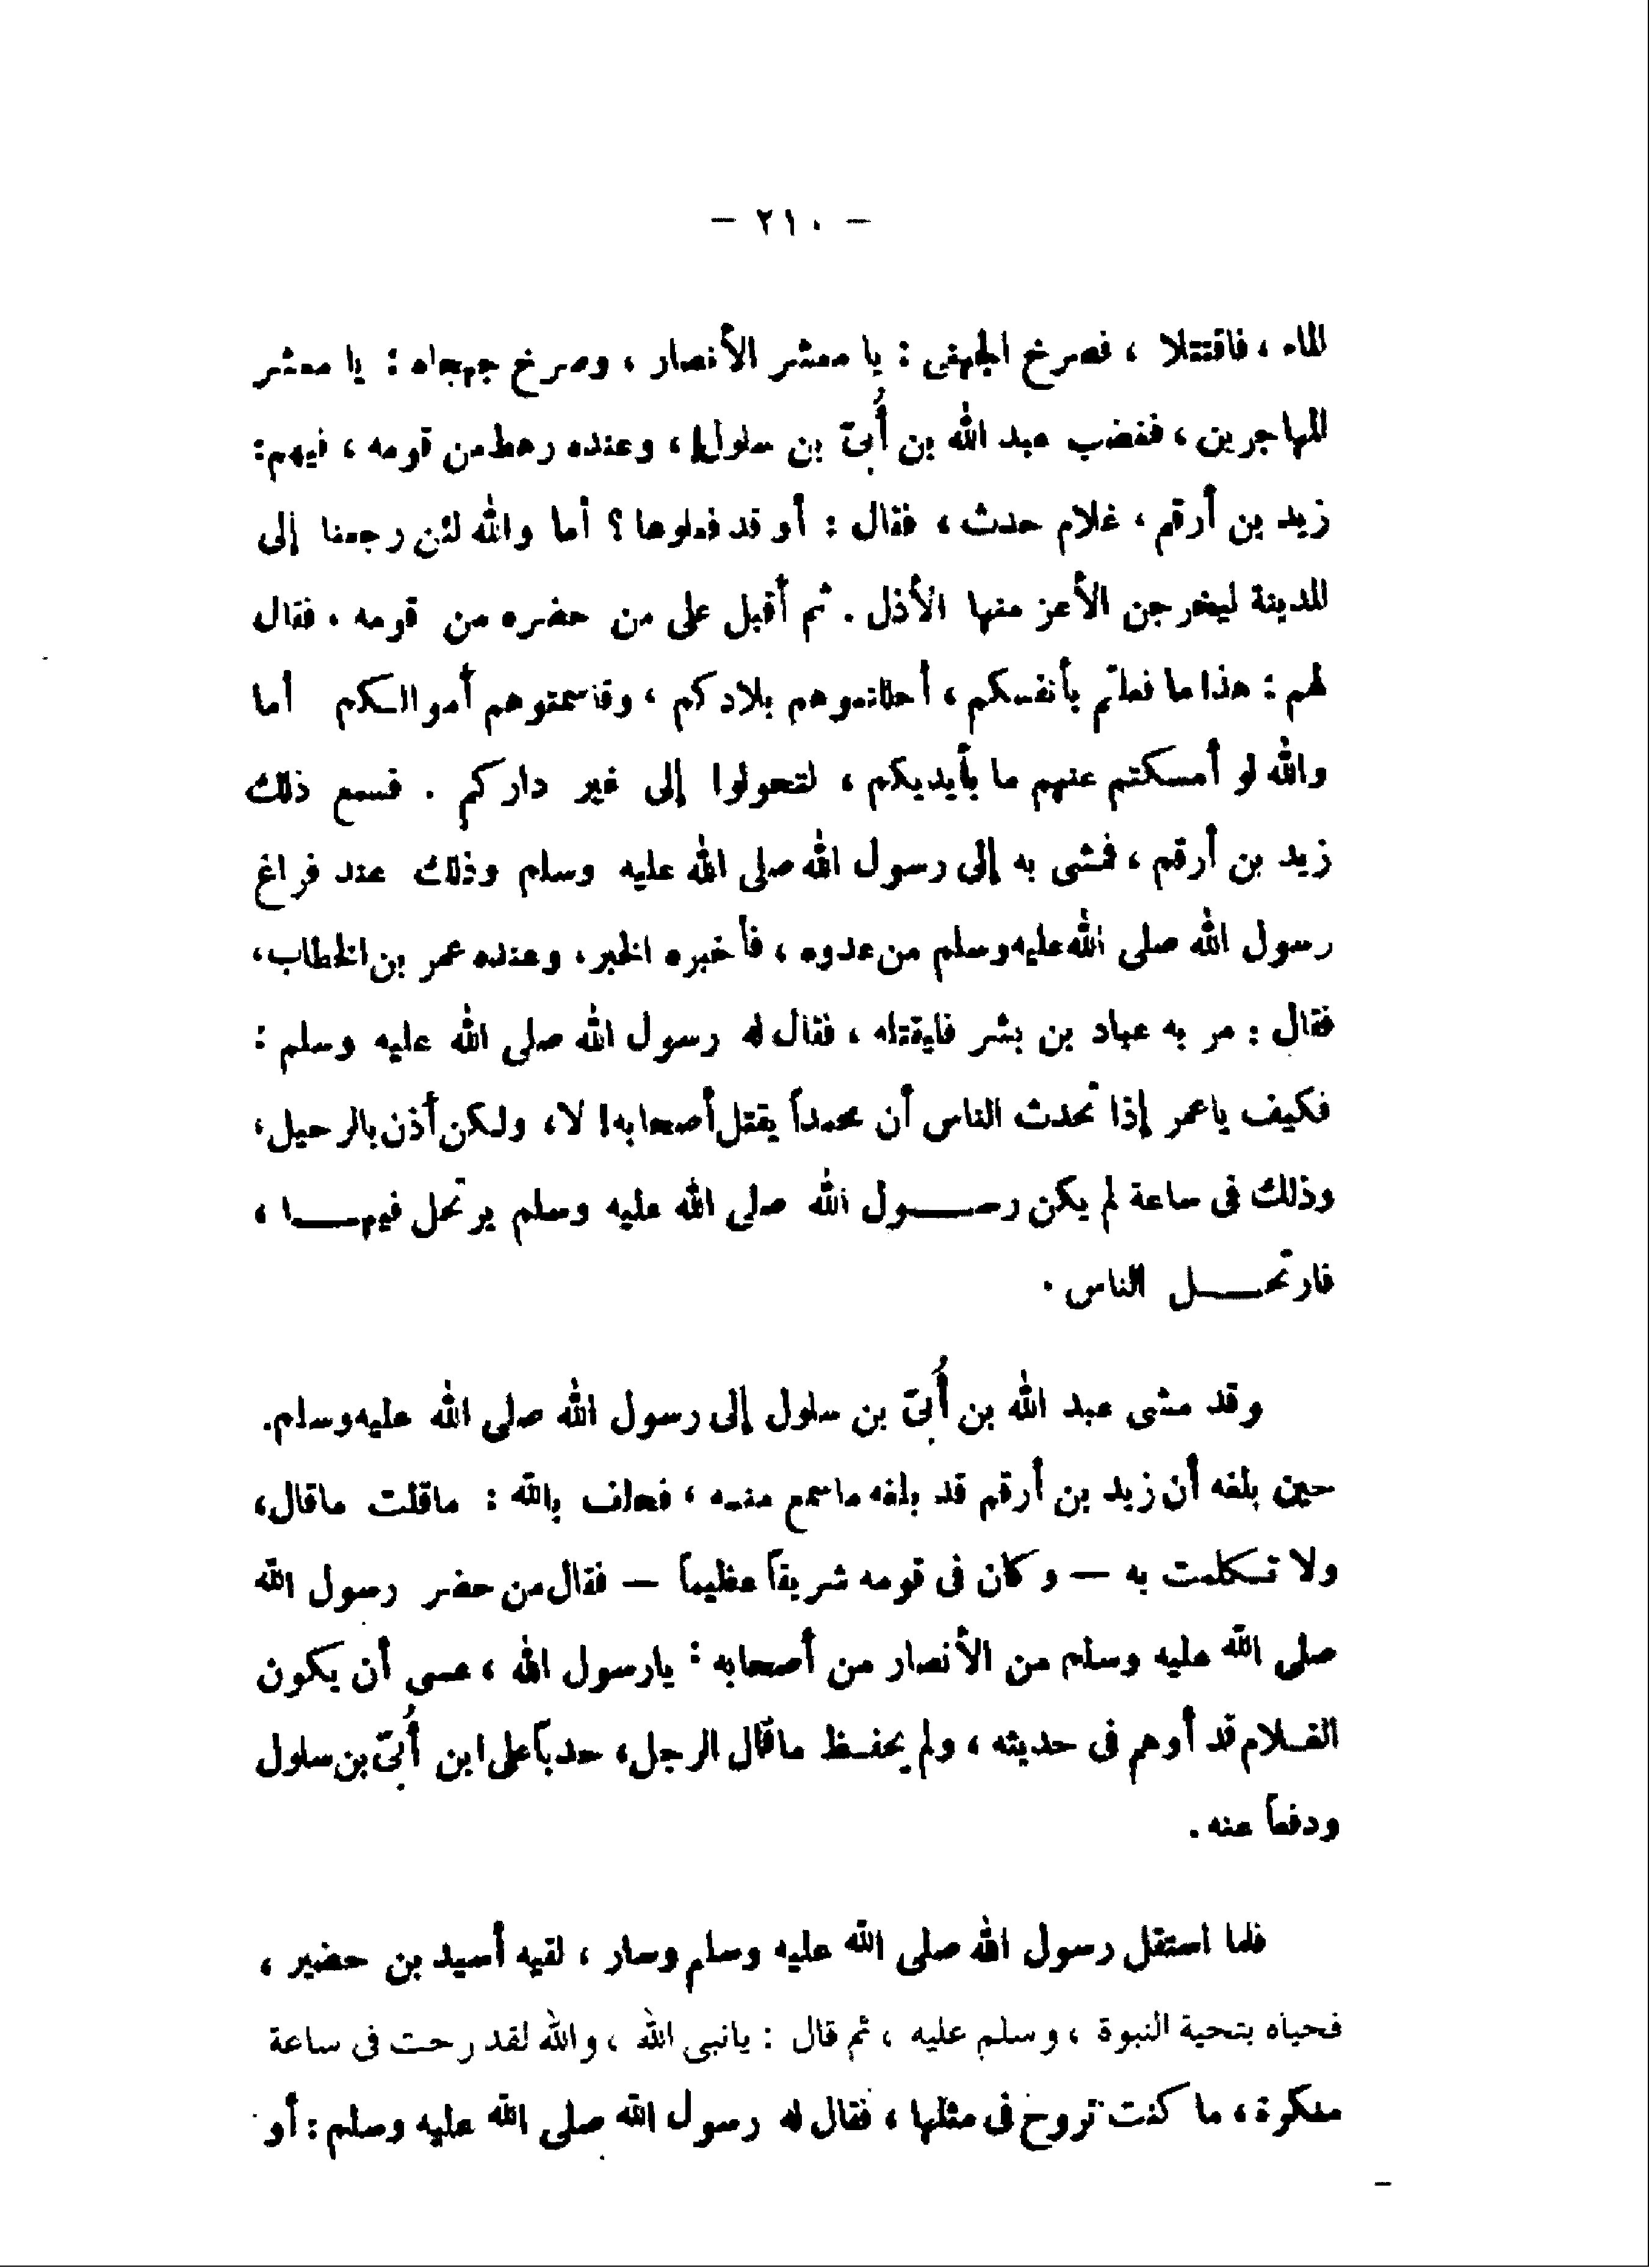 – ٢١٠ –
الماء ، فاقتتلا ، فصرخ الجهنى : يا معشر الأنصار ، وصرخ جهجاه : يا معشر
المهاجرين ، فغضب عبد الله بن أُبىّ بن سلول ، وعنده رهط من قومه ، فيهم :
زيد بن أرقم ، غلام حدث ، فقال : أو قد فعلوها ؟ أما والله لئن رجعنا إلى
المدينة ليخرجن الأعز منها الأذل . ثم أقبل على من حضره من قومه . فقال
لهم : هذا ما فعلتم بأنفسكم ، أحللتموهم بلادكم ، وقاسمتوهم أموالكم أما
والله لو أمسكتم عنهم ما بأيديكم ، لتحولوا إلى غير داركم . فسمع ذلك
زيد بن أرقم ، فمشى به إلى رسول الله صلى الله عليه وسلم وذلك عند فراغ
رسول الله صلى الله عليه وسلم من عدوه ، فأخبره الخبر ، وعنده عمر بن الخطاب ،
فقال : مر به عباد بن بشر فليقتله ، فقال له رسول الله صلى الله عليه وسلم :
فكيف ياعمر إذا تحدث الناس أن محمداً يقتل أصحابه! لا ، ولكن أذن بالرحيل ،
وذلك فى ساعة لم يكن رســول الله صلى الله عليه وسلم يرتحل فيهــا ،
فارتحــل الناس .
وقد مشى عبد الله بن أُبىّ بن سلول إلى رسول الله صلى الله عليه وسلم.
حين بلغه أن زيد بن أرقم قد بلغه ماسمع منه ، فحلف بالله : ماقلت ماقال ،
ولا تكلمت به – وكان فى قومه شريفاً عظيماً – فقال من حضر رسول الله
صلى الله عليه وسلم من الأنصار من أصحابه : يارسول الله ، عسى أن يكون
الغلام قد أوهم فى حديثه ، ولم يحفظ ماقال الرجل ، حدباً على ابن أُبىّ بن سلول
ودفعاً عنه .
فلما استقل رسول الله صلى الله عليه وسلم وسار ، لقيه أسيد بن حضير ،
فحياه بتحية النبوة ، وسلم عليه ، ثم قال : يانبى الله ، والله لقد رحت فى ساعة
منكرة ، ما كنت تروح فى مثلها ، فقال له رسول الله صلى الله عليه وسلم : أو